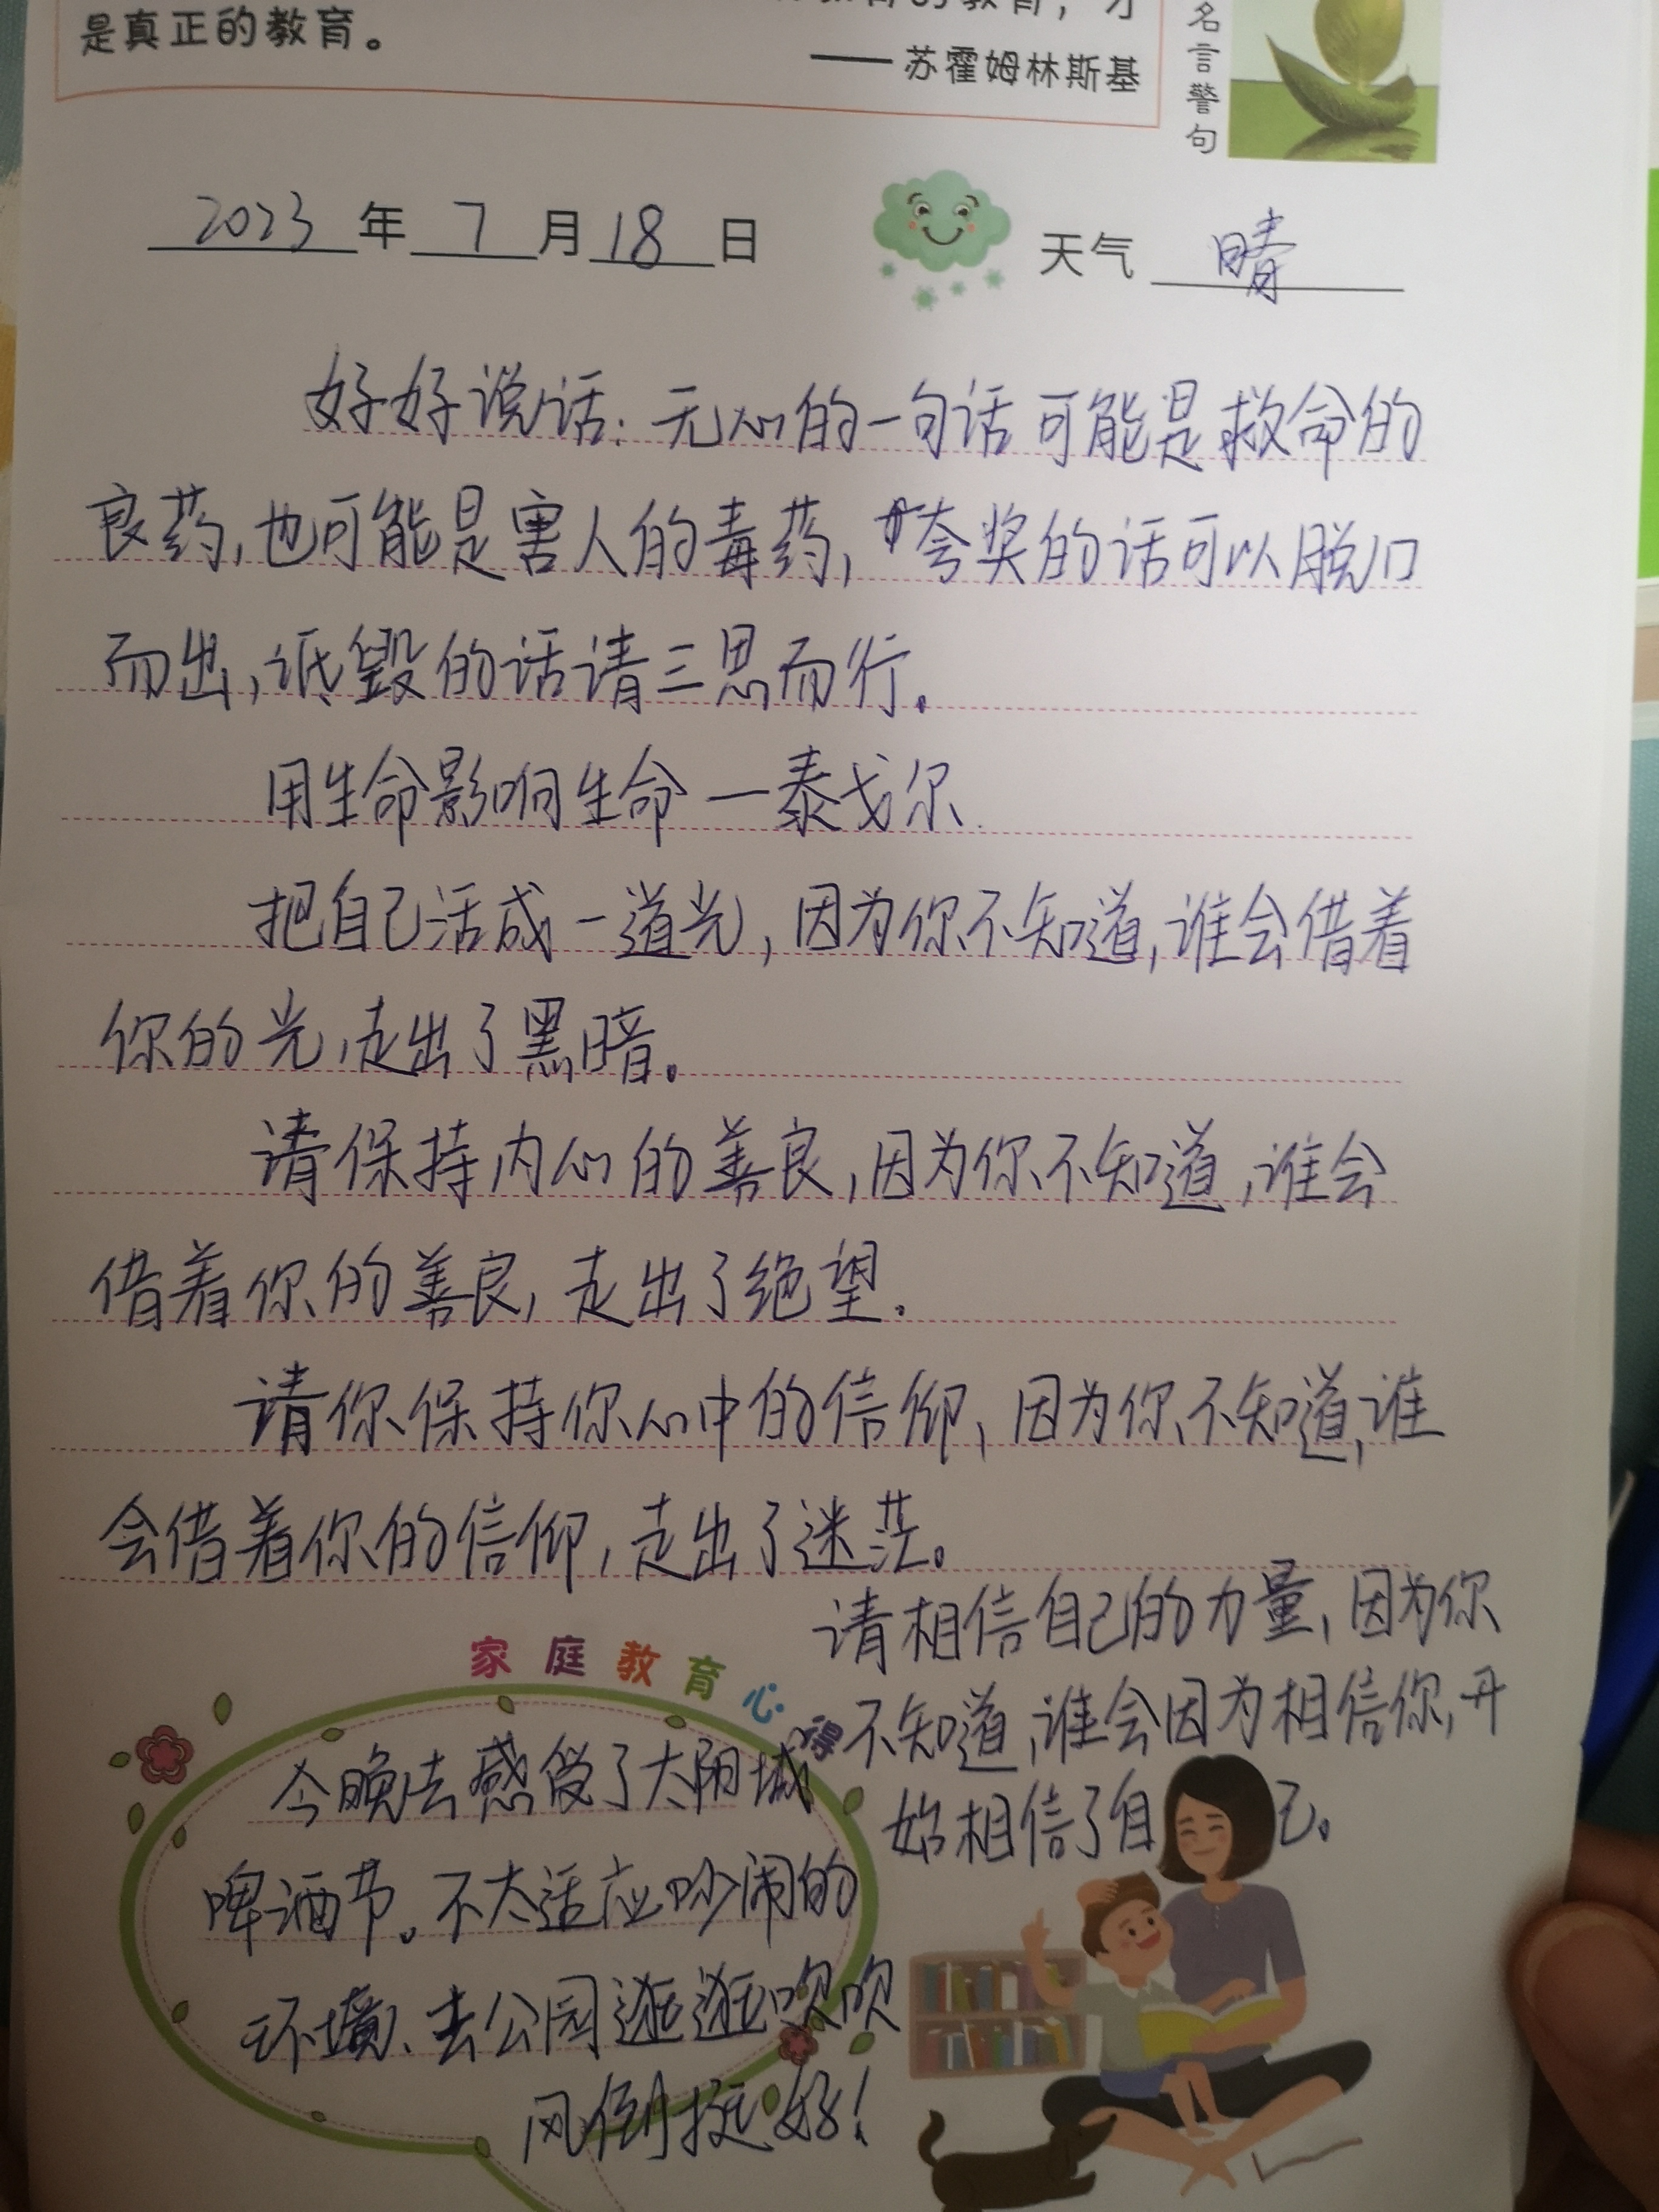 的教育，才
是真正的教育。
——苏霍姆林斯基
名言警句
2023年7月18日
天气 晴
好好说话：无心的一句话可能是救命的
良药，也可能是害人的毒药，夸奖的话可以脱口
而出，诋毁的话请三思而行。
用生命影响生命—泰戈尔.
把自己活成一道光，因为你不知道，谁会借着
你的光，走出了黑暗。
请保持内心的善良，因为你不知道，谁会
借着你的善良，走出了绝望。
请你保持你心中的信仰，因为你不知道，谁
会借着你的信仰，走出了迷茫。
请相信自己的力量，因为你
不知道，谁会因为相信你，开
始相信了自己。
家庭教育心得
今晚去感受了太阳城
啤酒节。不太适应吵闹的
环境、去公园逛逛吹吹
风倒挺好！